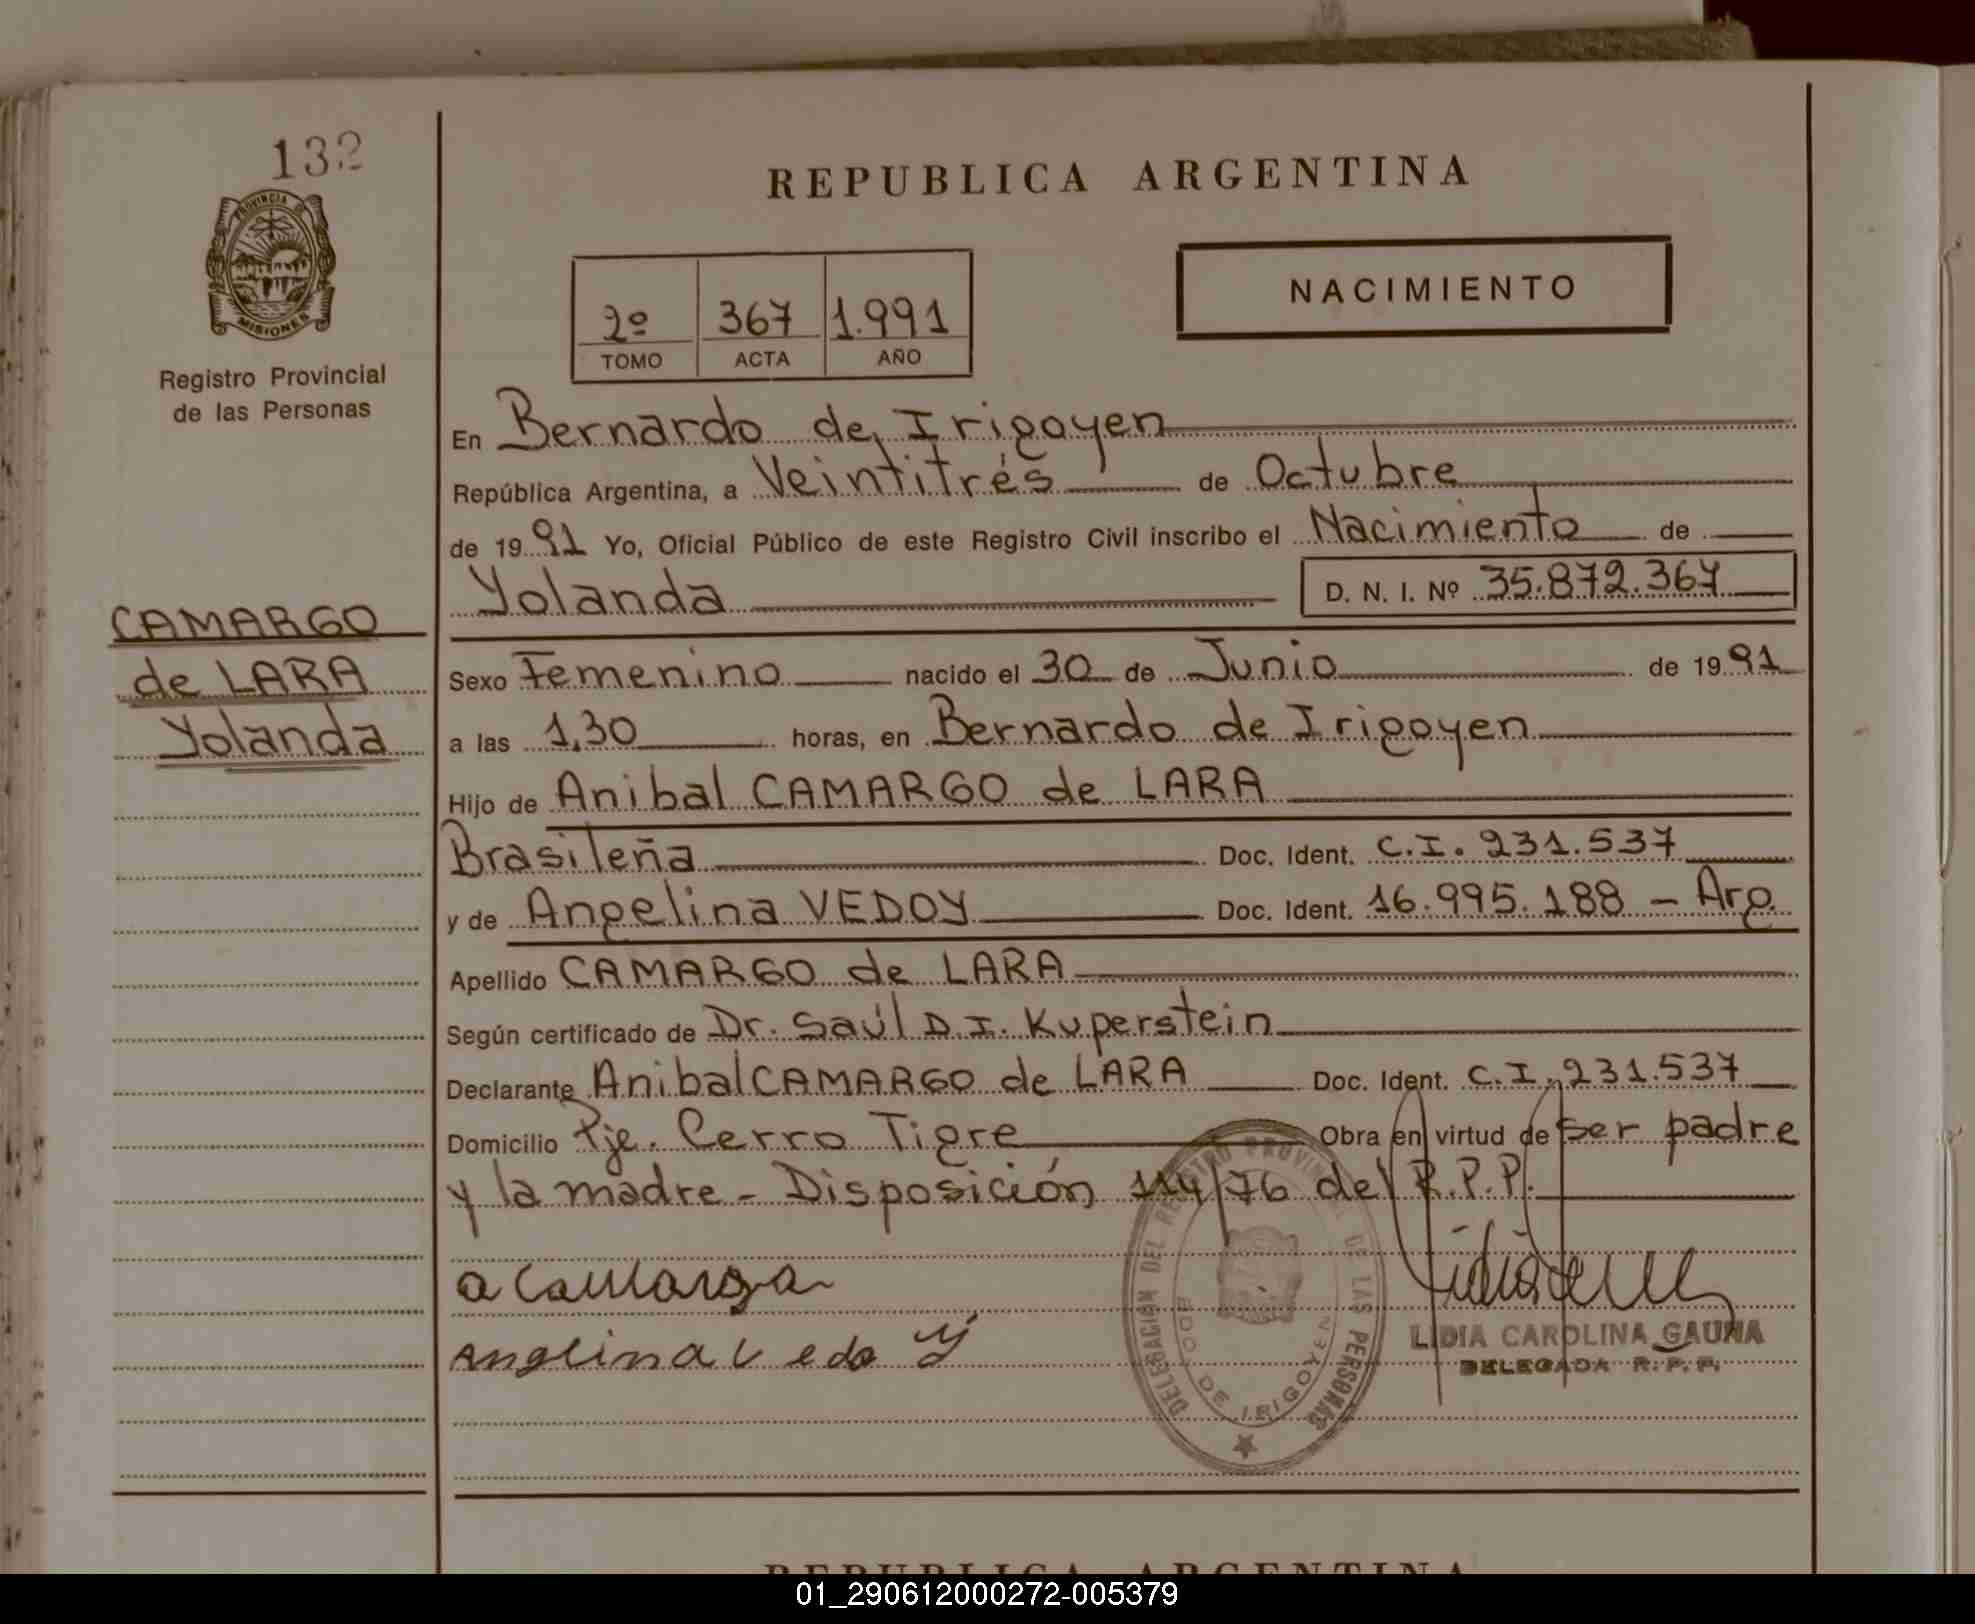 132
PROVINCIA DE
MISIONES
Registro Provincial
de las Personas
CAMARGO
de LARA
Yolanda
REPUBLICA ARGENTINA
2º 367 1.991
TOMO ACTA AÑO
NACIMIENTO
En Bernardo de Irigoyen
República Argentina, a Veintitrés de Octubre
de 1991 Yo, Oficial Público de este Registro Civil inscribo el Nacimiento de
Yolanda D. N. I. Nº 35.872.367
Sexo Femenino nacido el 30 de Junio de 1991
a las 1,30 horas, en Bernardo de Irigoyen
Hijo de Anibal CAMARGO de LARA
Brasileña Doc. Ident. C.I. 231.537
y de Angelina VEDOY Doc. Ident. 16.995.188 - Arg.
Apellido CAMARGO de LARA
Según certificado de Dr. Saúl D.I. Kuperstein
Declarante Anibal CAMARGO de LARA Doc. Ident. C.I. 231.537
Domicilio Pje. Cerro Tigre Obra en virtud de ser padre
y la madre - Disposición 114/76 del R.P.P.
a Camargo
Angelina Vedo y
DELEGACION DEL REGISTRO PROVINCIAL DE LAS PERSONAS
BDO. DE IRIGOYEN
LIDIA CAROLINA GAUNA
DELEGADA R. P. P.
REPUBLICA ARGENTINA
01_290612000272-005379